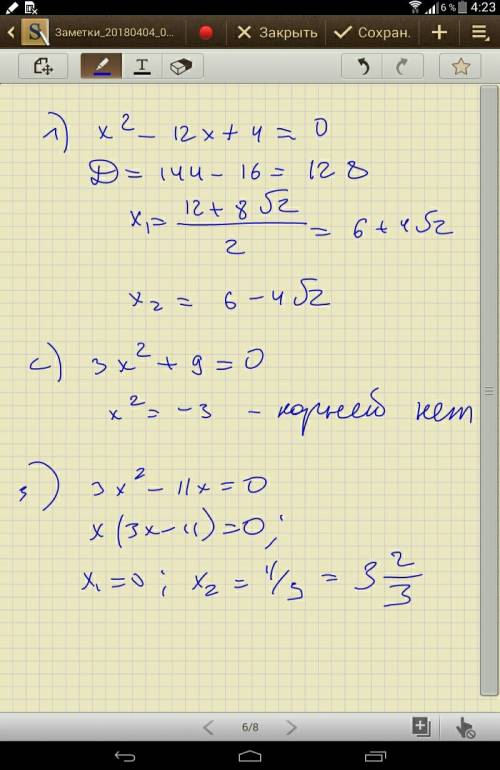 6 % 4:23
Заметки_20180404_0... Закрыть Сохран.
T
1) x² - 12x + 4 = 0
D = 144 - 16 = 128
x₁ = (12 + 8√2)/2 = 6 + 4√2
x₂ = 6 - 4√2
c) 3x² + 9 = 0
x² = -3 - корней нет
3) 3x² - 11x = 0
x(3x-11)=0;
x₁=0; x₂ = 11/3 = 3 2/3
6/8